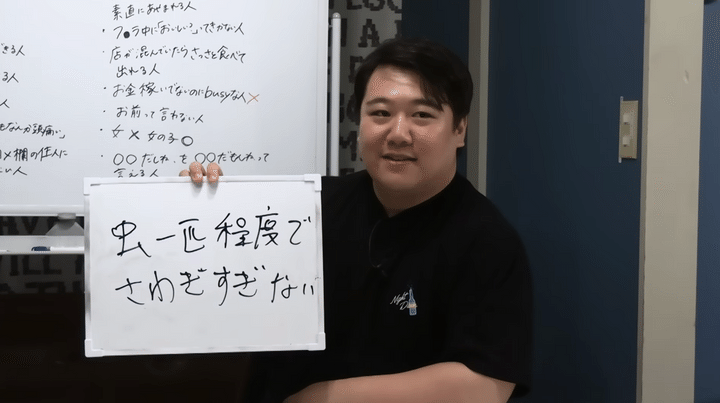 素直にあやまれる人
・フ●ラ中に「おいしい?」ってきかない人
・店が混んでいたらさっさと食べて
出れる人
・お金稼いでないのにbusyな人×
・お前って言わない人
・女 × 女の子 ○
・〇〇だしね を 〇〇だもんねって
言える人
できる人
る人
人
もなんか頭痛い」
欄の住人に
い人
虫一匹程度で
さわぎすぎない